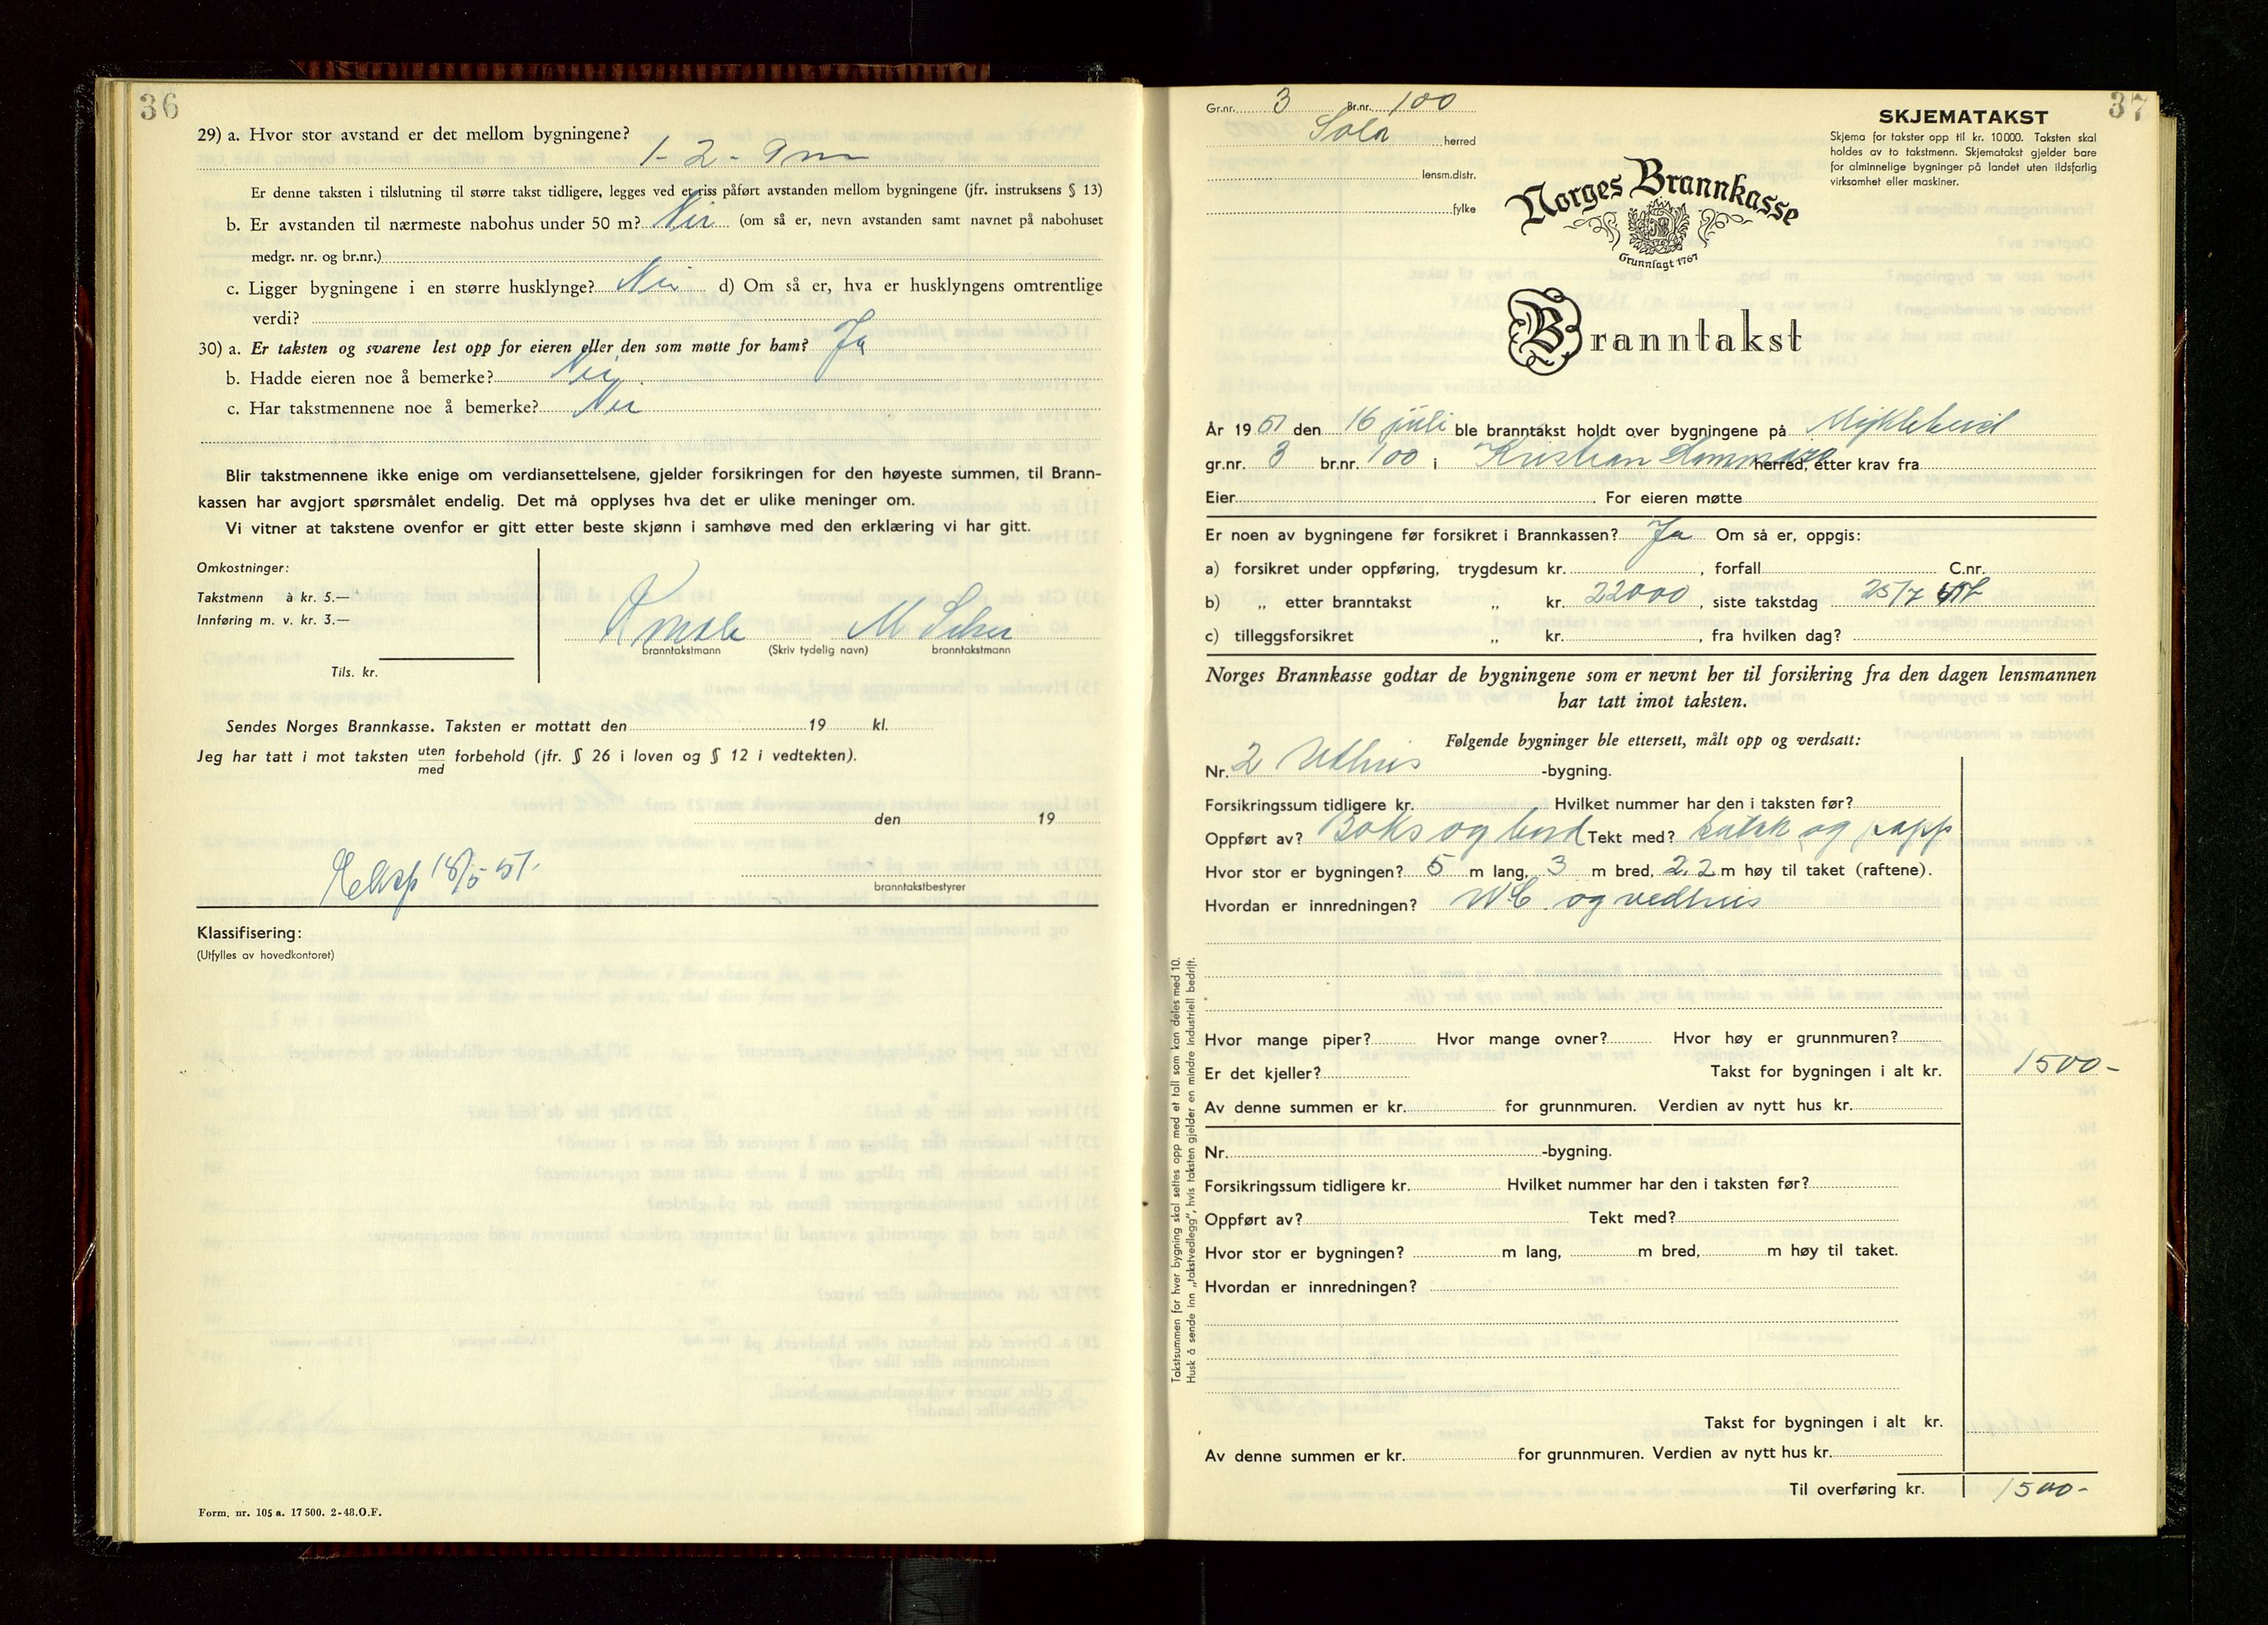 36
29) a. Hvor stor avstand er det mellom bygningene?
1-2-9m
Er denne taksten i tilslutning til større takst tidligere, legges ved et riss påført avstanden mellom bygningene (jfr. instruksens § 13)
b. Er avstanden til nærmeste nabohus under 50 m? Nei (om så er, nevn avstanden samt navnet på nabohuset
medgr. nr. og br.nr.)
c. Ligger bygningene i en større husklynge? Nei d) Om så er, hva er husklyngens omtrentlige
verdi?
30) a. Er taksten og svarene lest opp for eieren eller den som møtte for ham? Ja
b. Hadde eieren noe å bemerke? Nei
c. Har takstmennene noe å bemerke? Nei
Blir takstmennene ikke enige om verdiansettelsene, gjelder forsikringen for den høyeste summen, til Brann-
kassen har avgjort spørsmålet endelig. Det må opplyses hva det er ulike meninger om.
Vi vitner at takstene ovenfor er gitt etter beste skjønn i samhøve med den erklæring vi har gitt.
Omkostninger:
Takstmenn à kr. 5.—
Innføring m. v. kr. 3.—
Tils. kr.
branntakstmann (Skriv tydelig navn) branntakstmann
Sendes Norges Brannkasse. Taksten er mottatt den 19 kl.
Jeg har tatt i mot taksten uten
med forbehold (jfr. § 26 i loven og § 12 i vedtekten).
den 19
18/5 51.
branntakstbestyrer
Klassifisering:
(Utfylles av hovedkontoret)
Form. nr. 105 a. 17 500. 2-48.O.F.
37
Gr.nr. 3 Br.nr. 100
Sola herred
lensm.distr.
fylke
SKJEMATAKST
Skjema for takster opp til kr. 10 000. Taksten skal
holdes av to takstmenn. Skjematakst gjelder bare
for alminnelige bygninger på landet uten ildsfarlig
virksomhet eller maskiner.
Norges Brannkasse
Grunnlagt 1767
Branntakst
År 1951 den 16 juli ble branntakst holdt over bygningene på Myklebust
gr.nr. 3 br.nr. 100 i Kristian herred, etter krav fra
Eier For eieren møtte
Er noen av bygningene før forsikret i Brannkassen? Ja Om så er, oppgis:
a) forsikret under oppføring, trygdesum kr. , forfall C.nr.
b) „ etter branntakst „ kr. 22000, siste takstdag 25/7
c) tilleggsforsikret „ kr. , fra hvilken dag?
Norges Brannkasse godtar de bygningene som er nevnt her til forsikring fra den dagen lensmannen
har tatt imot taksten.
Følgende bygninger ble ettersett, målt opp og verdsatt:
Nr. 2 Uthus -bygning.
Forsikringssum tidligere kr. Hvilket nummer har den i taksten før?
Oppført av? Boks og bord Tekt med? sutak og papp
Hvor stor er bygningen? 5 m lang, 3 m bred, 2,2 m høy til taket (raftene).
Hvordan er innredningen? WC og vedhus
Hvor mange piper? Hvor mange ovner? Hvor høy er grunnmuren?
Er det kjeller? Takst for bygningen i alt kr. 1500-
Av denne summen er kr. for grunnmuren. Verdien av nytt hus kr.
Nr. -bygning.
Forsikringssum tidligere kr. Hvilket nummer har den i taksten før?
Oppført av? Tekt med?
Hvor stor er bygningen? m lang, m bred, m høy til taket.
Hvordan er innredningen?
Takst for bygningen i alt kr.
Av denne summen er kr. for grunnmuren. Verdien av nytt hus kr.
Til overføring kr. 1500-
Takstsummen for hver bygning skal settes opp med et tall som kan deles med 10.
Husk å sende inn „takstvedlegg", hvis taksten gjelder en mindre industriell bedrift.